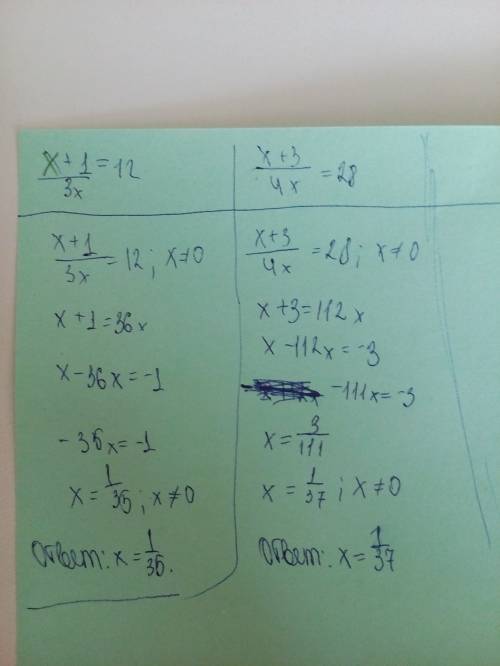 x+1/3x = 12
x+1/3x = 12; x≠0
x+1=36x
x-36x=-1
-35x=-1
x=1/35; x≠0
Ответ: x=1/35.
x+3/4x = 28
x+3/4x = 28; x≠0
x+3=112x
x-112x=-3
-111x=-3
x=3/111
x=1/37; x≠0
Ответ: x=1/37